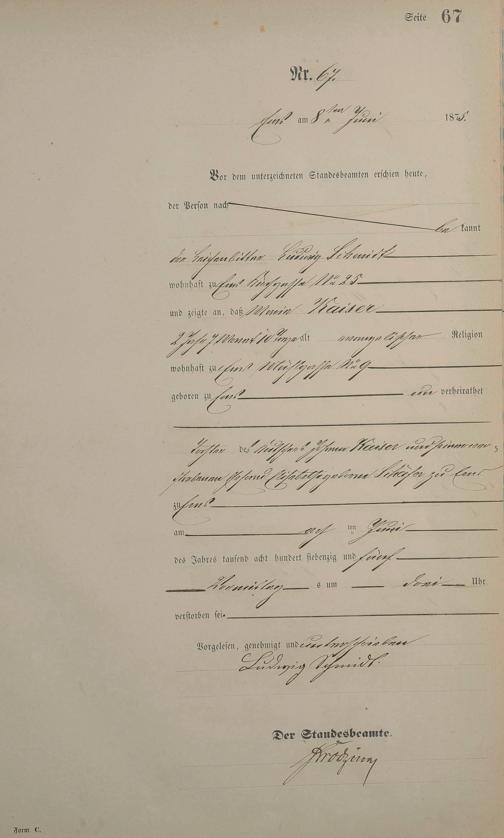 Seite 67
Nr. 67.
Ems am 8ten Juni 1875.
Vor dem unterzeichneten Standesbeamten erschien heute,
der Person nach
bekannt
der Leichenbitter Ludwig Schmidt
wohnhaft zu Ems Kirchgasse No 25
und zeigte an, daß Maria Kaiser
2 Jahr 7 Monat 10 Tage alt evangelischer Religion
wohnhaft zu Ems No 9
geboren zu Ems unverheirathet
Tochter des Kaiser und seiner
Ehefrau geborene zu Ems
zu Ems
am acht ten Juni
des Jahres tausend acht hundert siebenzig und fünf
Vormittags um drei Uhr
verstorben sei.
Vorgelesen, genehmigt und unterschrieben
Ludwig Schmidt.
Der Standesbeamte.
Form C.